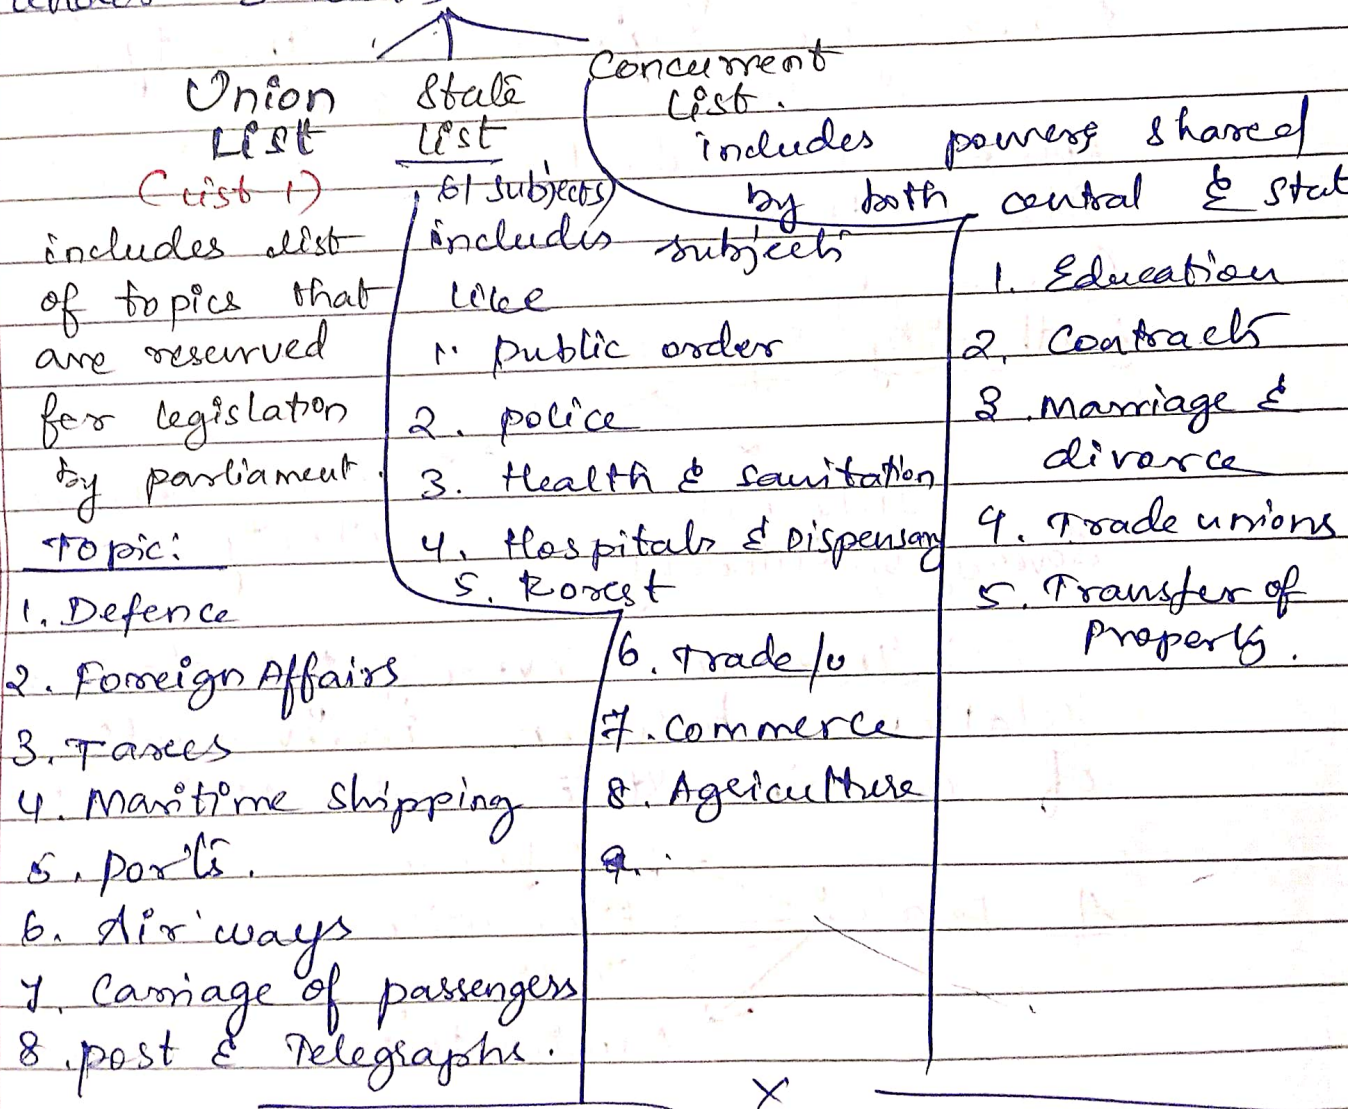 Union
List
(List 1)
includes list
of topics that
are reserved
for legislation
by parliament.
Topic:
1. Defence
2. Foreign Affairs
3. Taxes
4. Maritime Shipping
5. Ports.
6. Airways
7. Carriage of passengers
8. post & Telegraphs.
State
List
61 subjects)
includes
subjects
like
1. public order
2. police
3. Health & sanitation
4. Hospitals & Dispensary
5. Forest
6. Trade/
7. Commerce
8. Agriculture
9.
Concurrent
List.
includes powers shared
by both central & stat
1. Education
2. Contracts
3. Marriage &
divorce
4. Trade unions
5. Transfer of
Property.
X